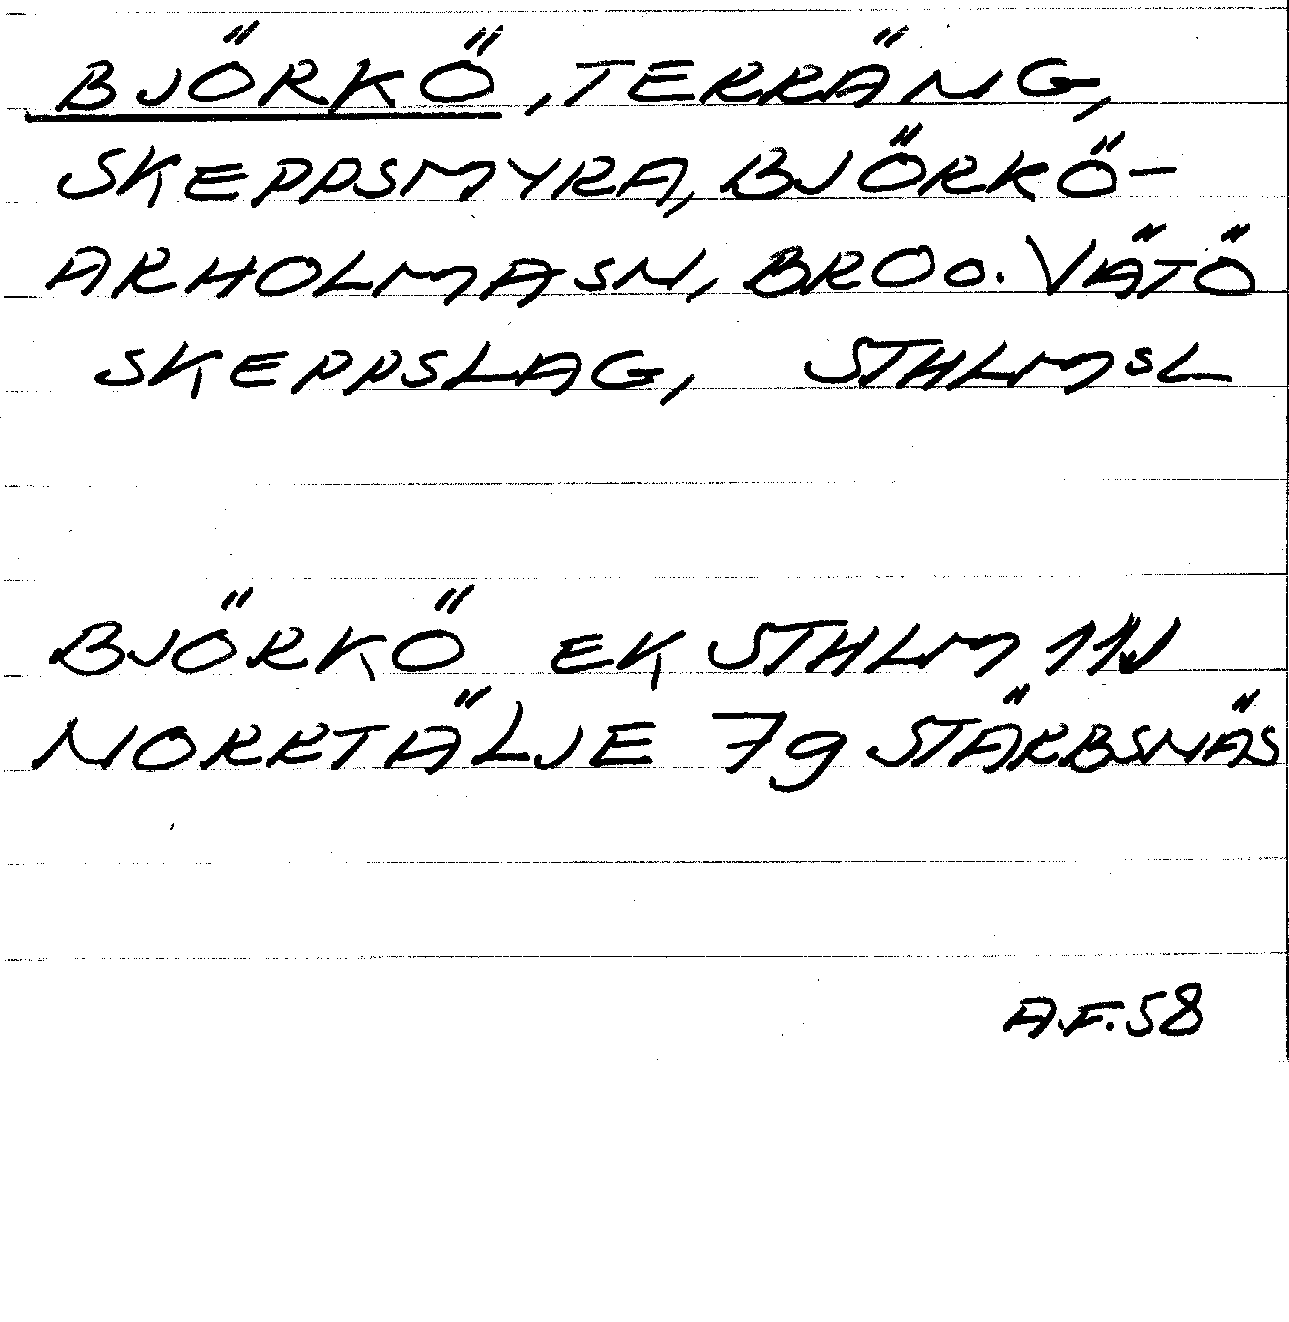 BJÖRKÖ, TERRÄNG,
SKEPPSMYRA, BJÖRKÖ-
ARHOLMASN, BRO o. VÄTÖ
SKEPPSLAG, STHLMSL
BJÖRKÖ EK STHLM
NORRTÄLJE 79 STÄRBSNÄS
A.F. 58